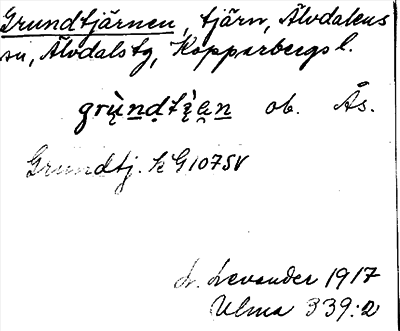 Grundtjärnen, tjärn, Älvdalens
sn, Älvdalstg, Kopparbergs l.
grùndtʒ̀än ob. Ås.
Grundtj. k G107SV
L. Levander 1917
Ulma 339:2